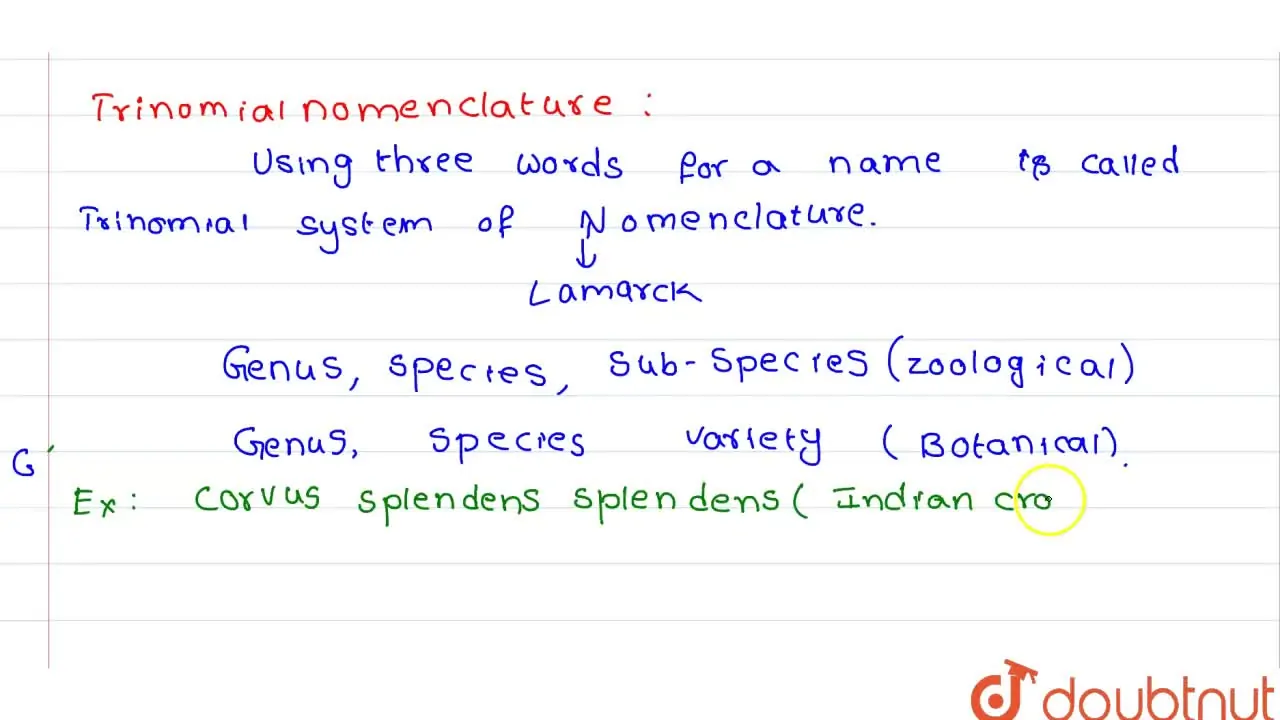 Trinomial nomenclature :
Using three words for a name is called
Trinomial system of Nomenclature.
↓
Lamarck
Genus, species, sub-species (zoological)
Genus, species variety (Botanical).
G
Ex: Corvus splendens splendens ( Indian cro
doubtnut